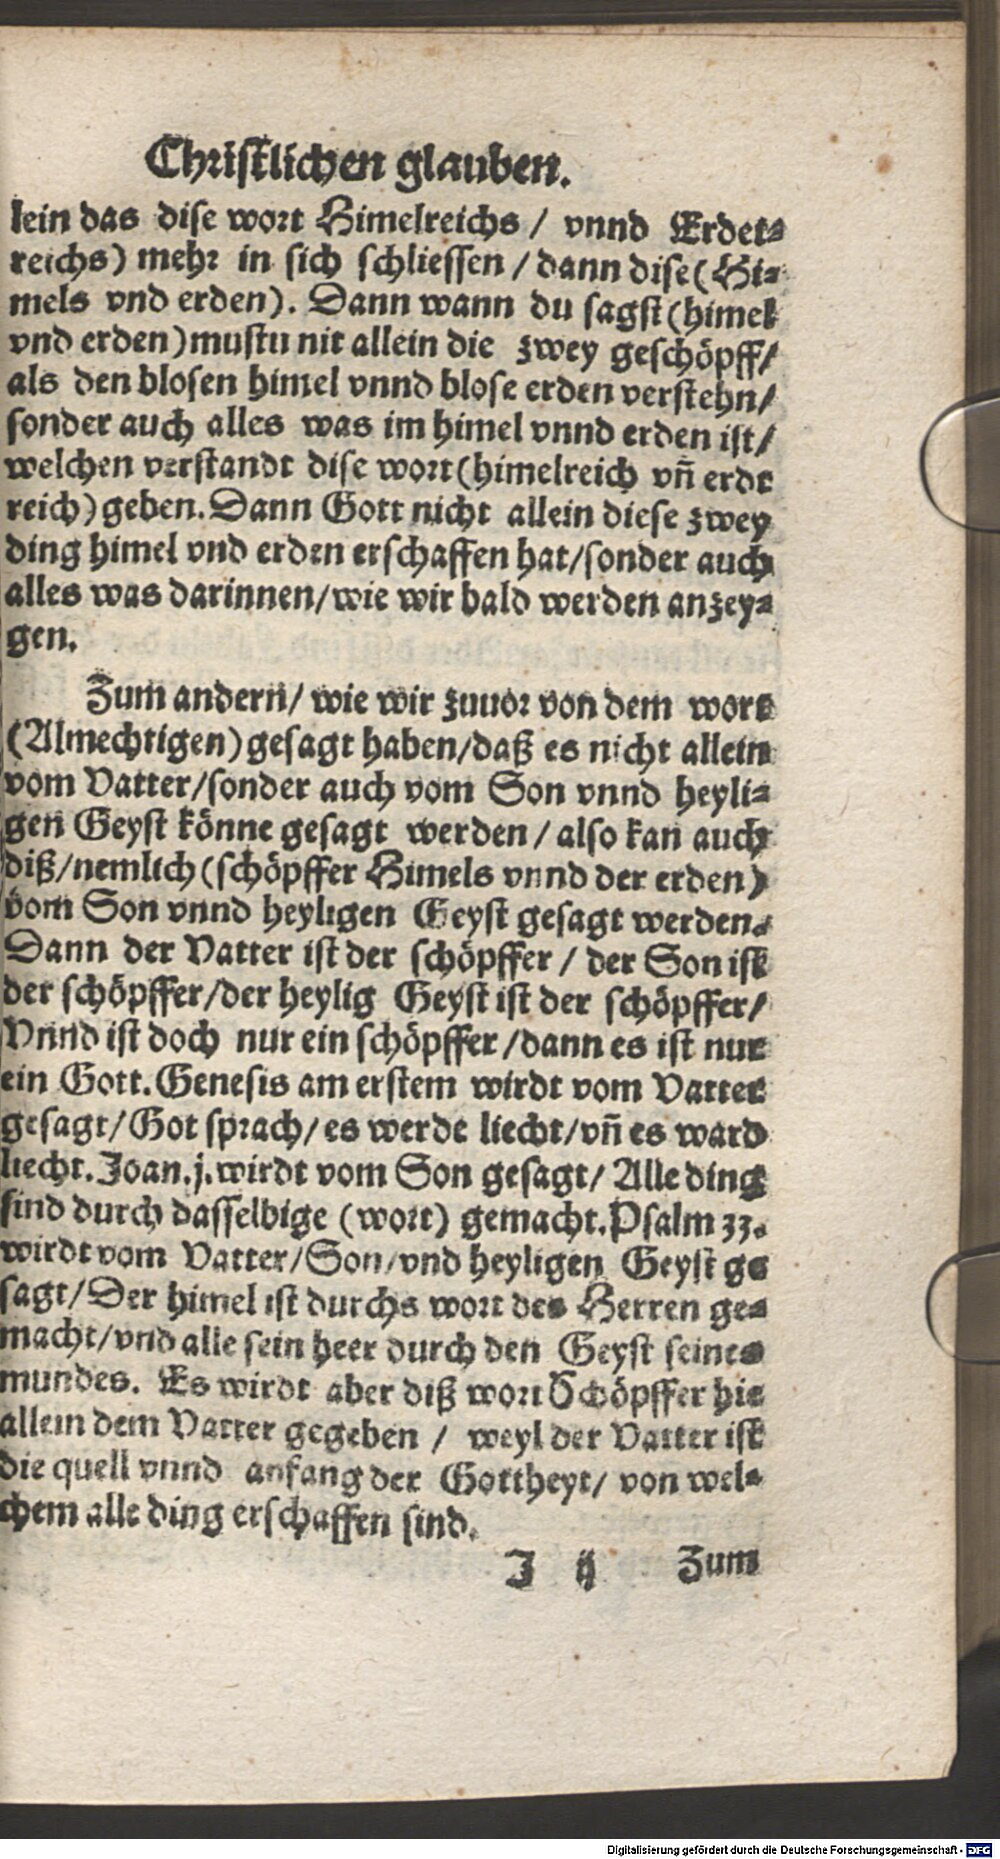 Christlichen glauben.
lein das dise wort Himelreichs / vnnd Erdet⸗
reichs) mehr in sich schliessen / dann dise (Hi⸗
mels vnd erden). Dann wann du sagst (himel
vnd erden) mustu nit allein die zwey geschöpff /
als den blosen himel vnnd blose erden verstehn /
sonder auch alles was im himel vnnd erden ist /
welchen verstandt dise wort (himelreich vñ erdt
reich) geben. Dann Gott nicht allein diese zwey
ding himel vnd erden erschaffen hat / sonder auch
alles was darinnen / wie wir bald werden anzey⸗
gen.
Zum andern / wie wir zuuor von dem wort
(Almechtigen) gesagt haben / daß es nicht allein
vom Vatter / sonder auch vom Son vnnd heyli⸗
gen Geyst könne gesagt werden / also kan auch
diß / nemlich (schöpffer Himels vnnd der erden)
vom Son vnnd heyligen Geyst gesagt werden.
Dann der Vatter ist der schöpffer / der Son ist
der schöpffer / der heylig Geyst ist der schöpffer /
Vnnd ist doch nur ein schöpffer / dann es ist nur
ein Gott. Genesis am erstem wirdt vom Vatter
gesagt / Got sprach / es werde liecht / vñ es ward
liecht. Joan. j. wirdt vom Son gesagt / Alle ding
sind durch dasselbige (wort) gemacht. Psalm 33.
wirdt vom Vatter / Son / vnd heyligen Geyst ge
sagt / Der himel ist durchs wort des Herren ge⸗
macht / vnd alle sein heer durch den Geyst seines
mundes. Es wirdt aber diß wort Schöpffer hie
allein dem Vatter gegeben / weyl der Vatter ist
die quell vnnd anfang der Gottheyt / von wel⸗
chem alle ding erschaffen sind.
J ij Zum
Digitalisierung gefördert durch die Deutsche Forschungsgemeinschaft - DFG